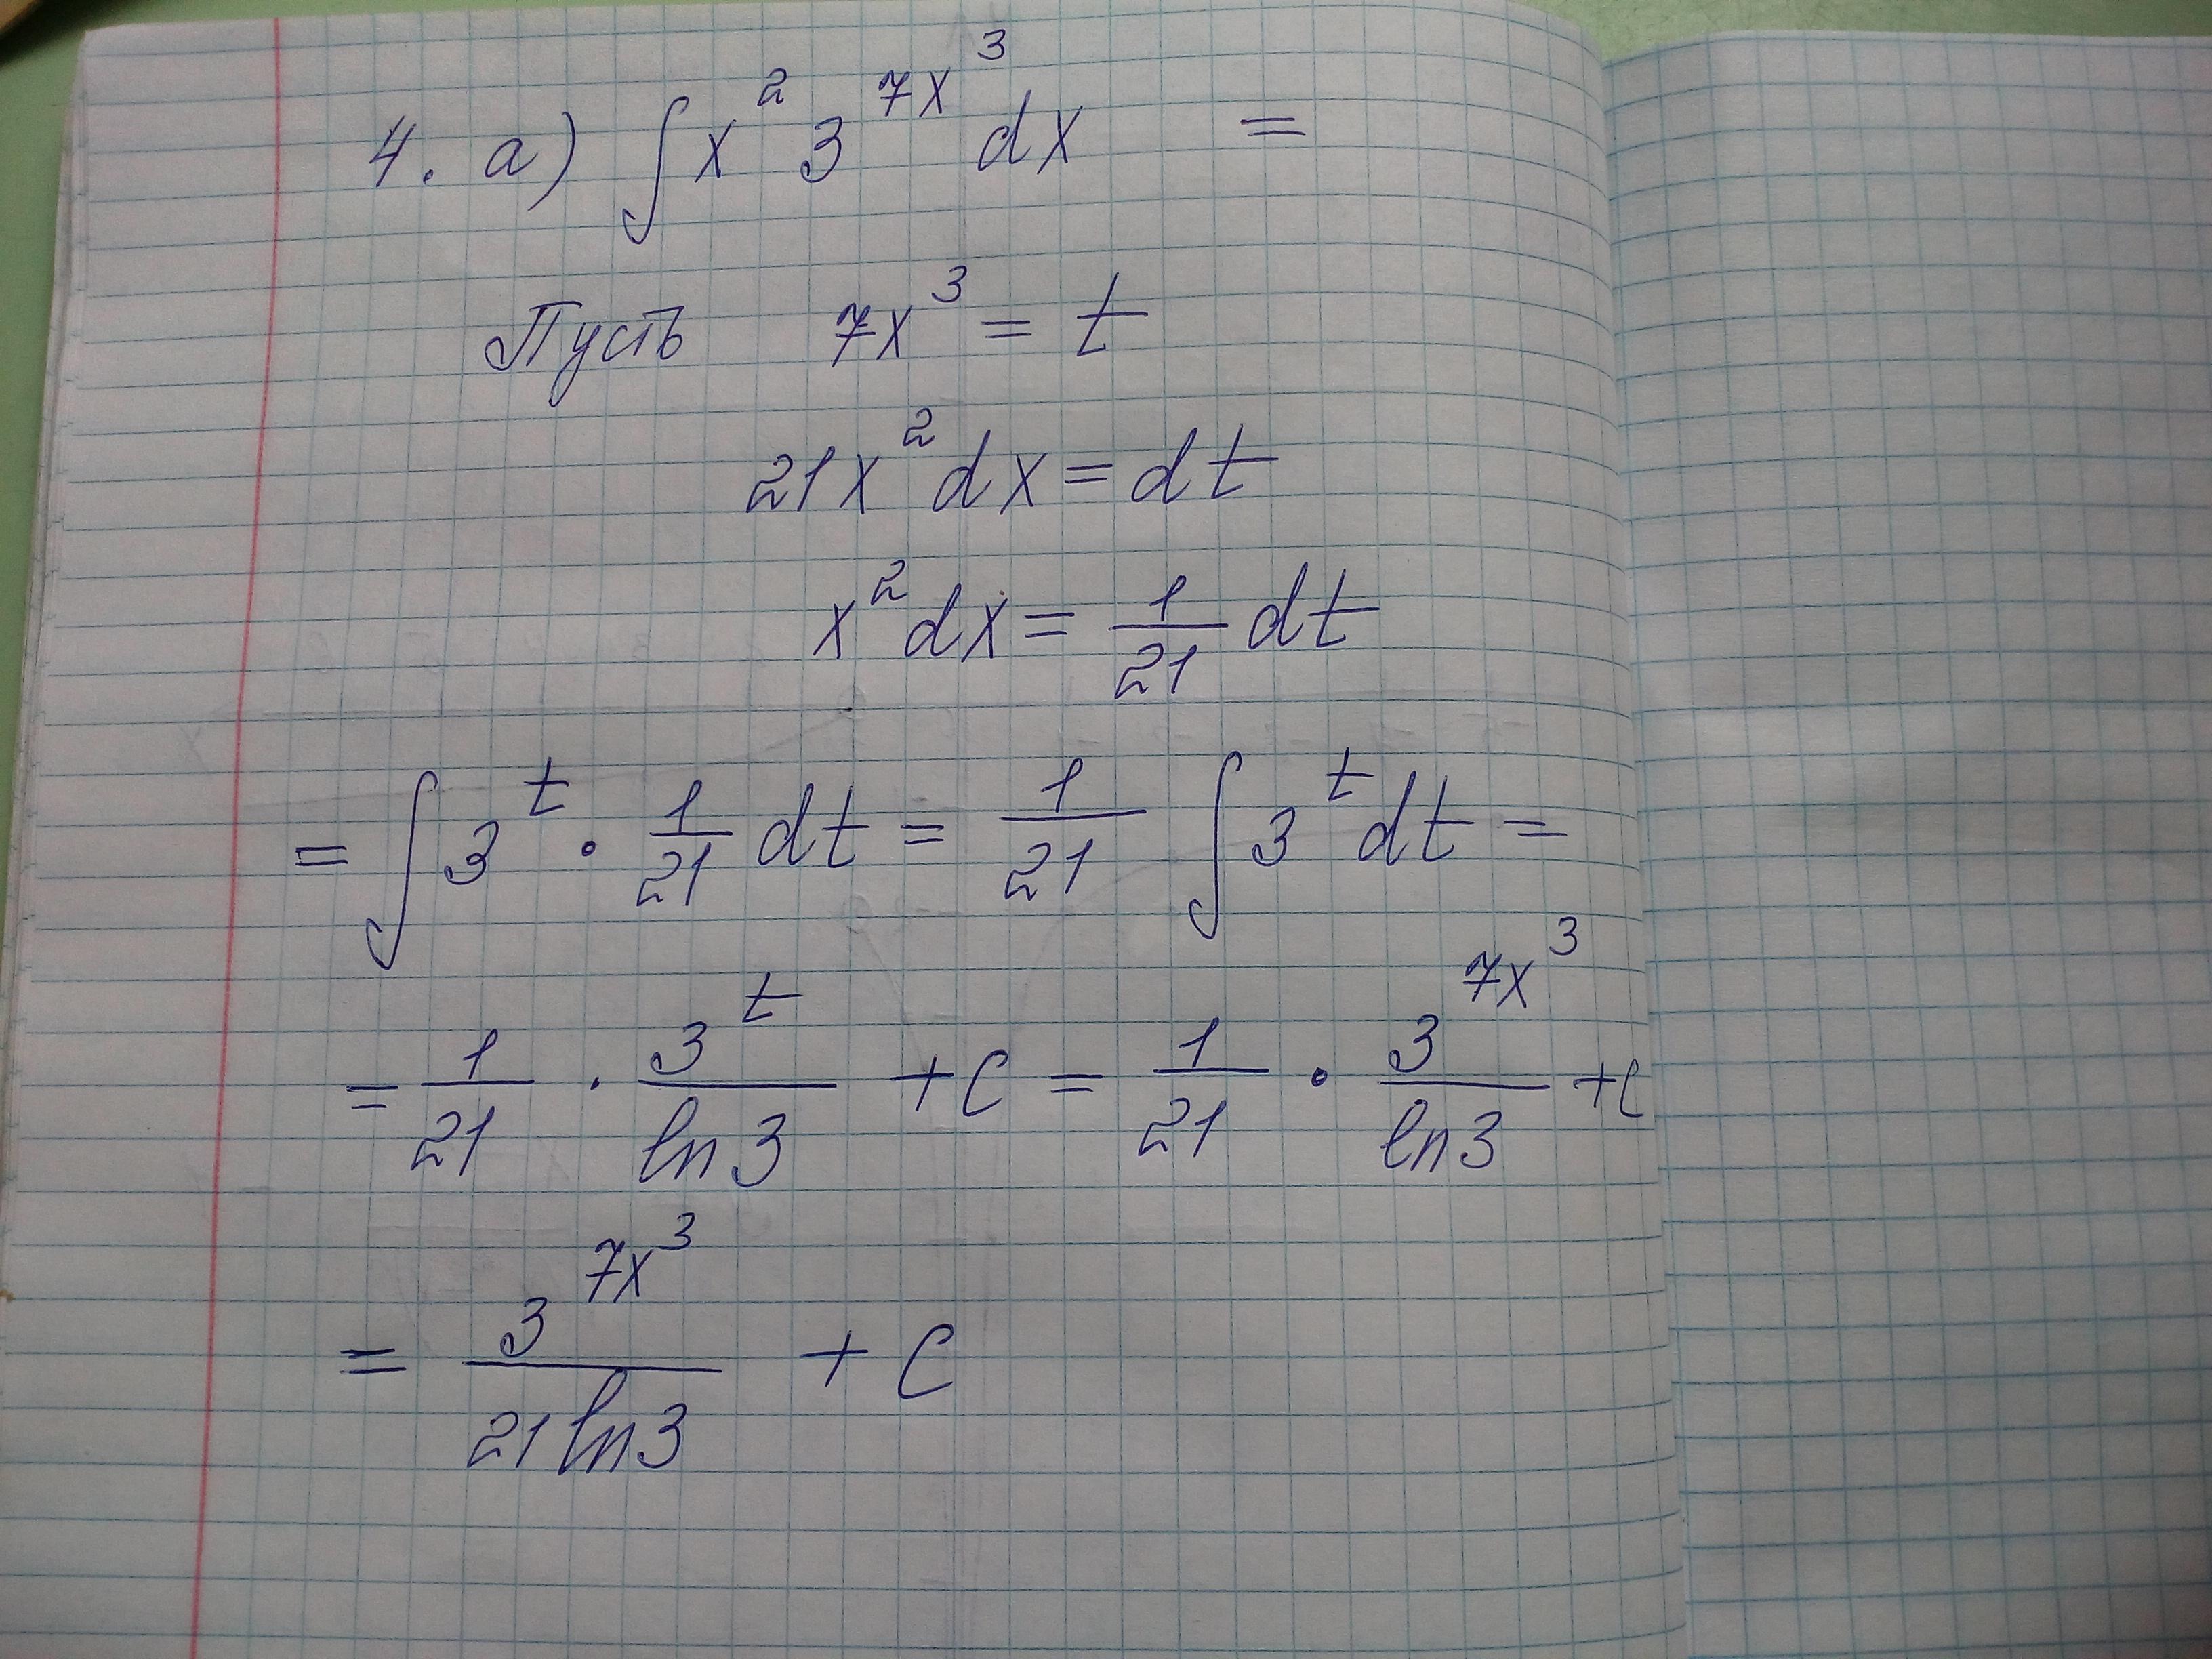 4. а) ∫ x² 3^(7x³) dx =
Пусть 7x³ = t
21x² dx = dt
x² dx = 1/21 dt
= ∫ 3^t · 1/21 dt = 1/21 ∫ 3^t dt =
= 1/21 · 3^t/ln3 + C = 1/21 · 3^(7x³)/ln3 + C
= 3^(7x³)/(21 ln3) + C